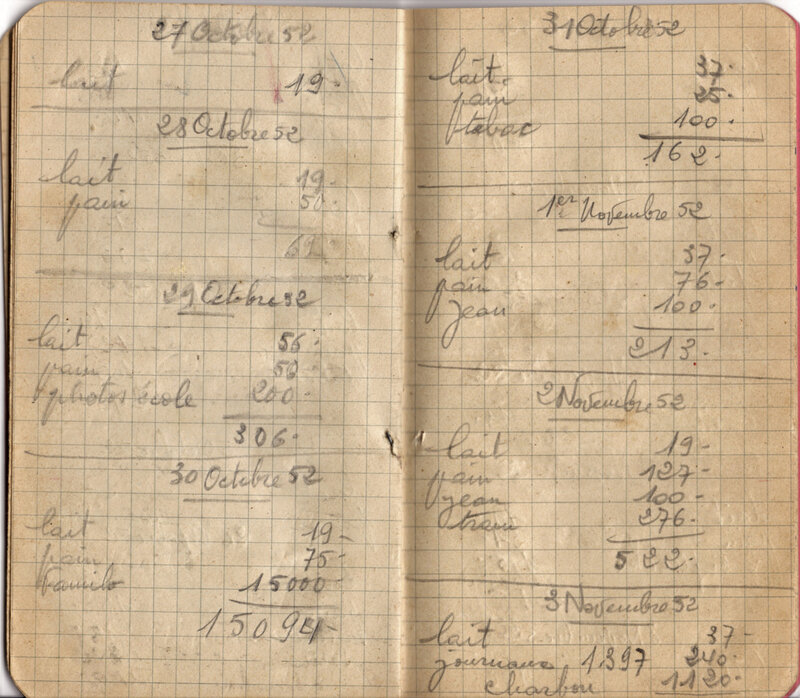 27 Octobre 52
lait 19-
28 Octobre 52
lait 19-
pain 50-
69-
29 Octobre 52
lait 56-
pain 50-
photos école 200-
306-
30 Octobre 52
lait 19-
pain 75-
15000-
15094-
31 Octobre 52
lait 37-
pain 25-
tabac 100-
162-
1er Novembre 52
lait 37-
pain 76-
Jean 100-
213-
2 Novembre 52
lait 19-
pain 127-
Jean 100-
train 276-
522-
3 Novembre 52
lait 37-
journaux 1397 240-
charbon 1120-